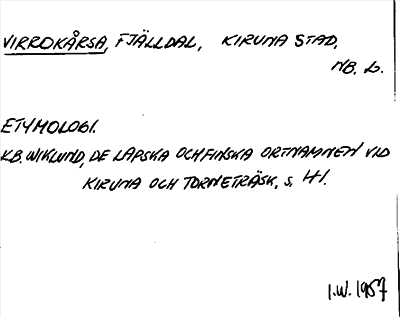 VIRROKÅRSA, FJÄLLDAL, KIRUNA STAD.
NB. L.
ETYMOLOGI.
KB. WIKLUND, DE LAPSKA OCH FINSKA ORTNAMNEN VID
KIRUNA OCH TORNETRÄSK, S. 41.
I.W. 1957